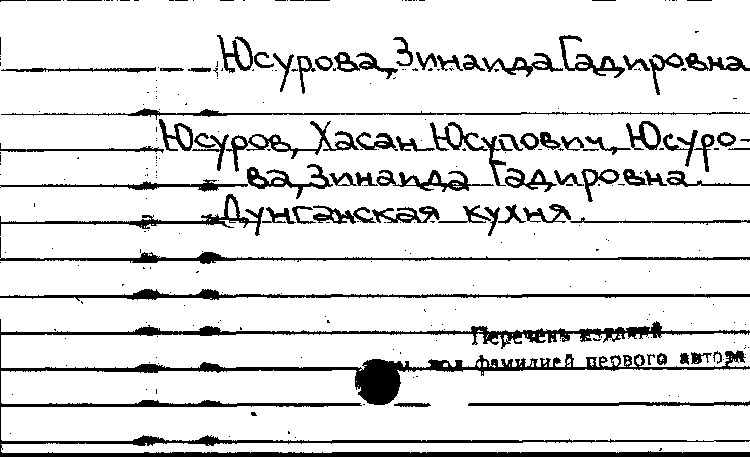 Юсурова, Зинаида Гадировна
Юсуров, Хасан Юсупович, Юсуро-
ва, Зинаида Гадировна.
Дунганская кухня.
Перечень изданий
см. под фамилией первого автора